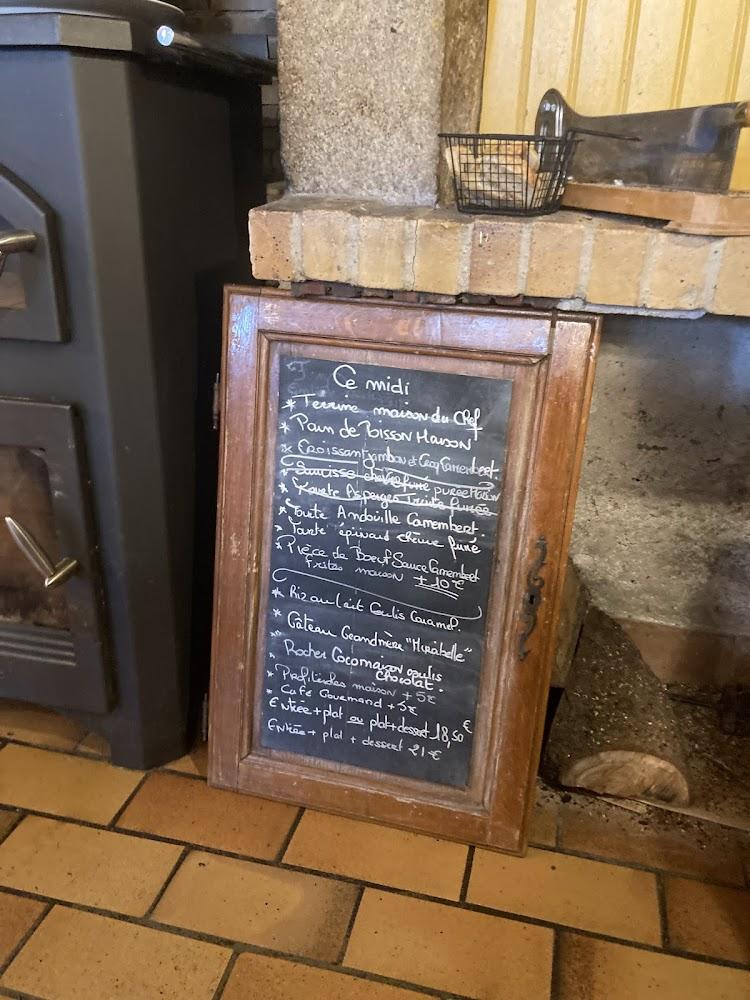 Ce midi
* Terrine maison du Chef
* Pain de Poisson Maison
* Croissant jambon et Camembert.
* Saucisse purée Maison
* Tarte Asperges Truite fumée
* Tourte Andouille Camembert.
* Tarte épinard chèvre fumé
* Pièce de Boeuf Sauce Camembert
frites maison +10€
* Riz au lait Coulis Caramel.
* Gâteau Grandmère "Mirabelle"
* Rocher Coco maison coulis
chocolat.
* Profiteroles maison +5€
* Café Gourmand +5€
Entrée + plat ou plat + dessert 18,50€
Entrée + plat + dessert 21€